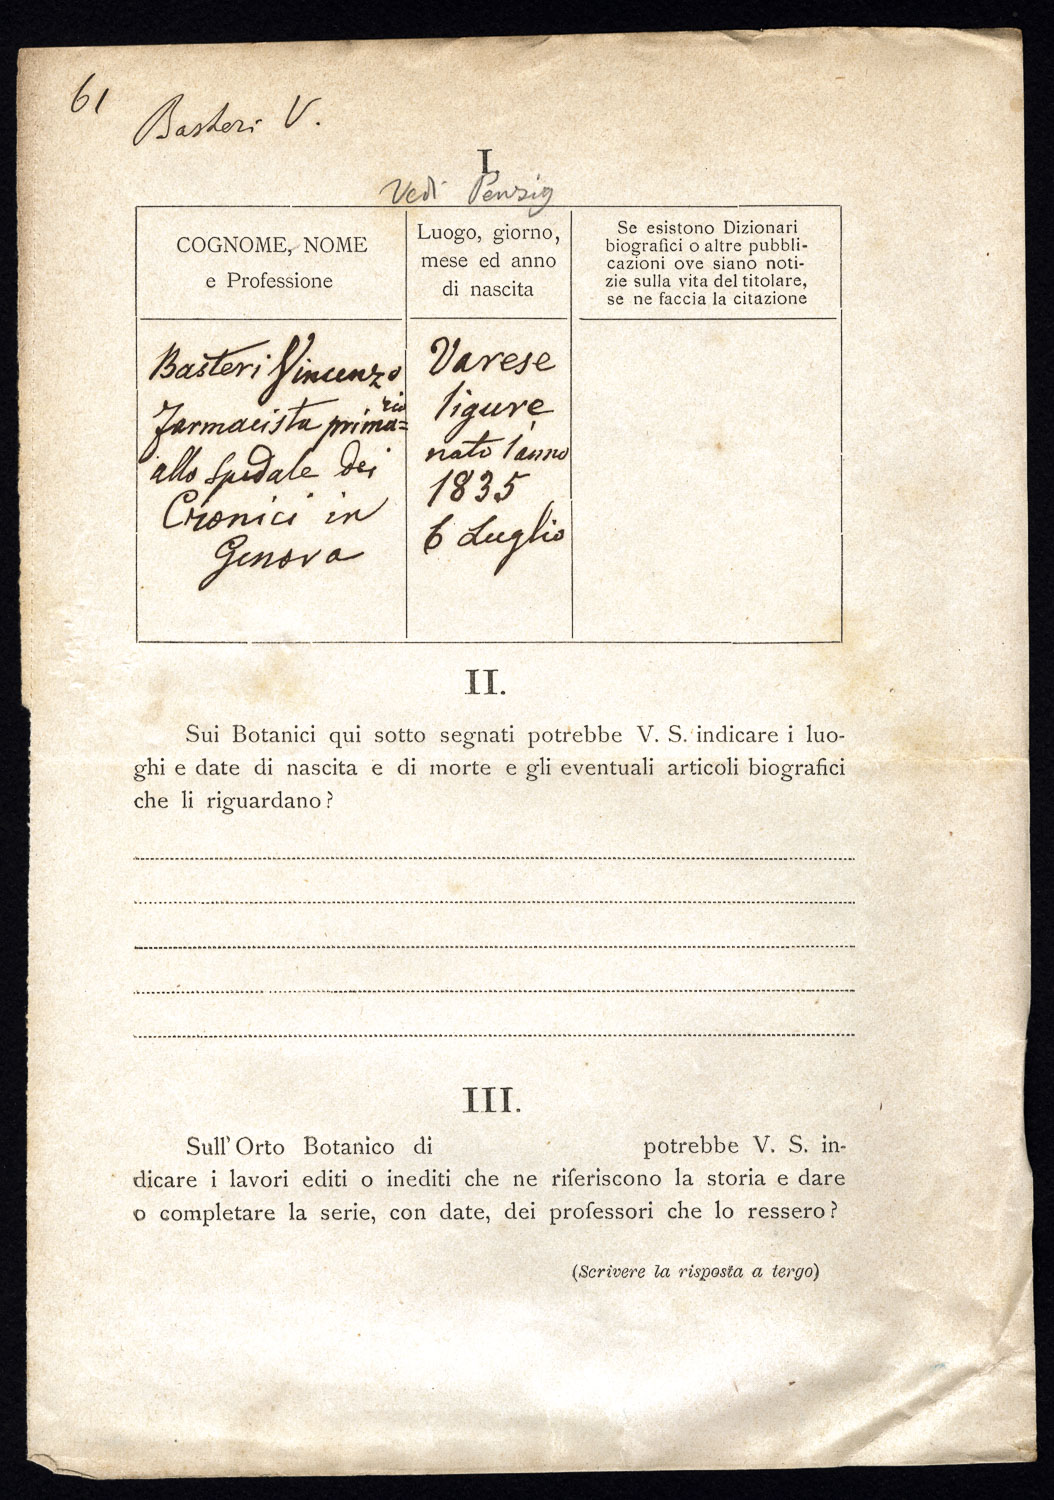 61
Basteri V.
I.
Vedi Penzig
COGNOME, NOME
e Professione
Luogo, giorno,
mese ed anno
di nascita
Se esistono Dizionari
biografici o altre pubbli-
cazioni ove siano noti-
zie sulla vita del titolare,
se ne faccia la citazione
Basteri Vincenzo
farmacista prima=rio
allo Spedale dei
Cronici in
Genova
Varese
ligure
nato l'anno
1835
6 Luglio
II.
Sui Botanici qui sotto segnati potrebbe V. S. indicare i luo-
ghi e date di nascita e di morte e gli eventuali articoli biografici
che li riguardano?
III.
Sull'Orto Botanico di potrebbe V. S. in-
dicare i lavori editi o inediti che ne riferiscono la storia e dare
o completare la serie, con date, dei professori che lo ressero?
(Scrivere la risposta a tergo)